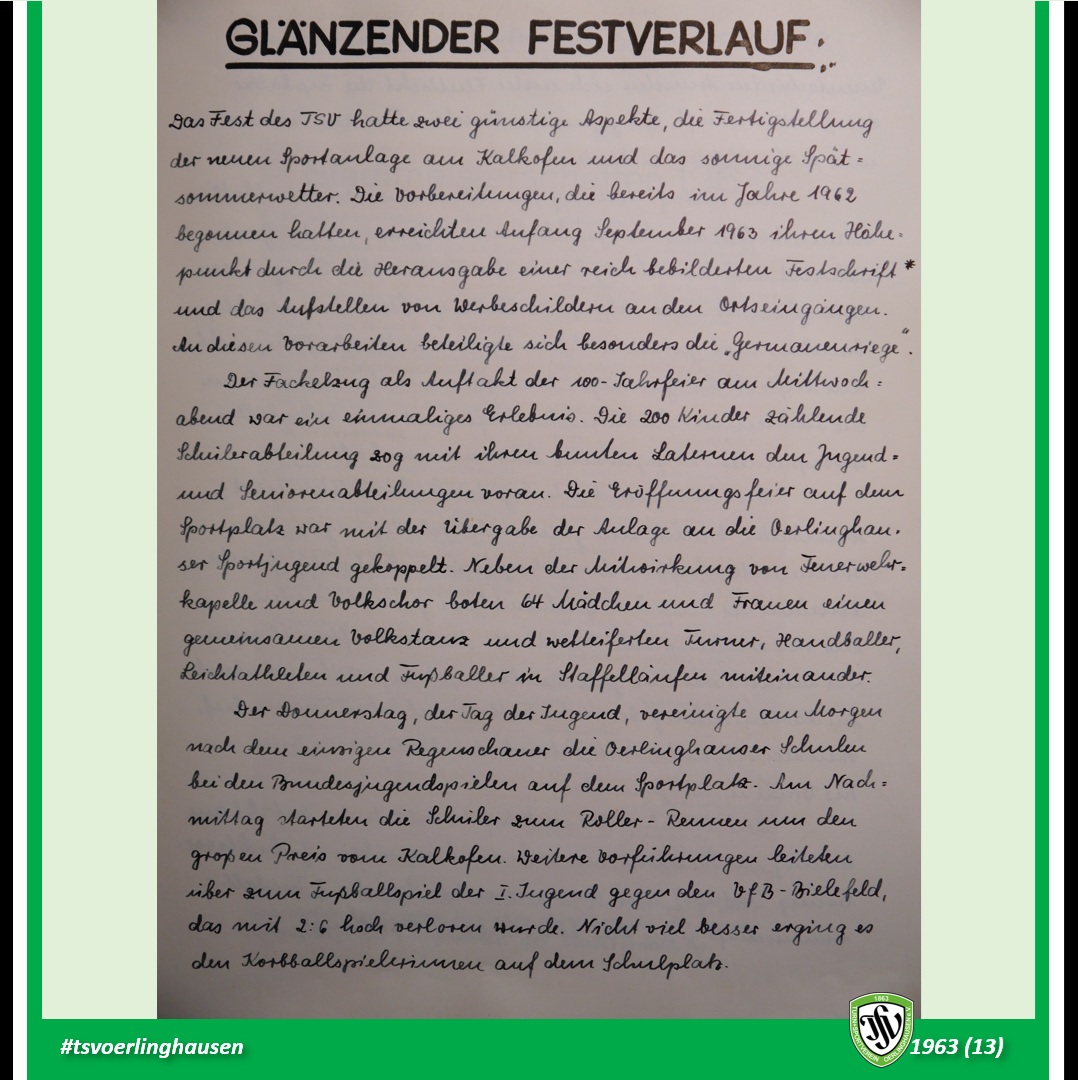 GLÄNZENDER FESTVERLAUF.
Das Fest des TSV hatte zwei günstige Aspekte, die Fertigstellung
der neuen Sportanlage am Kalkofen und das sonnige Spät=
sommerwetter. Die Vorbereitungen, die bereits im Jahre 1962
begonnen hatten, erreichten Anfang September 1963 ihren Höhe=
punkt durch die Herausgabe einer reich bebilderten Festschrift *
und das Aufstellen von Werbeschildern an den Ortseingängen.
An diesen Vorarbeiten beteiligte sich besonders die „Germanenriege“.
Der Fackelzug als Auftakt der 100-Jahrfeier am Mittwoch=
abend war ein einmaliges Erlebnis. Die 200 Kinder zählende
Schülerabteilung zog mit ihren bunten Laternen den Jugend=
und Seniorenabteilungen voran. Die Eröffnungsfeier auf dem
Sportplatz war mit der Übergabe der Anlage an die Oerlinghau=
ser Sportjugend gekoppelt. Neben der Mitwirkung von Feuerwehr=
kapelle und Volkschor boten 64 Mädchen und Frauen einen
gemeinsamen Volkstanz und wetteiferten Turner, Handballer,
Leichtathleten und Fußballer in Staffelläufen miteinander.
Der Donnerstag, der Tag der Jugend, vereinigte am Morgen
nach dem einzigen Regenschauer die Oerlinghauser Schulen
bei den Bundesjugendspielen auf dem Sportplatz. Am Nach=
mittag starteten die Schüler zum Roller-Rennen um den
großen Preis vom Kalkofen. Weitere Vorführungen leiteten
über zum Fußballspiel der I. Jugend gegen den VfB-Bielefeld,
das mit 2:6 hoch verloren wurde. Nicht viel besser erging es
den Korbballspielerinnen auf dem Schulplatz.
#tsvoerlinghausen
1863
TSV
1963 (13)